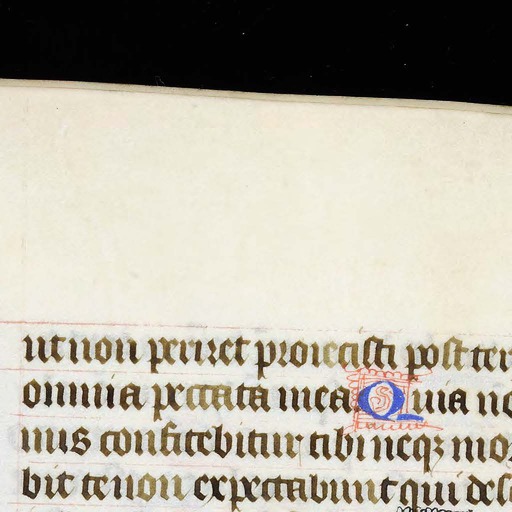 ut non periret proiecisti post ter
omnia peccata mea. Quia no
nus confitebitur tibi neqꝫ mor
bit te non expectabunt qui desc